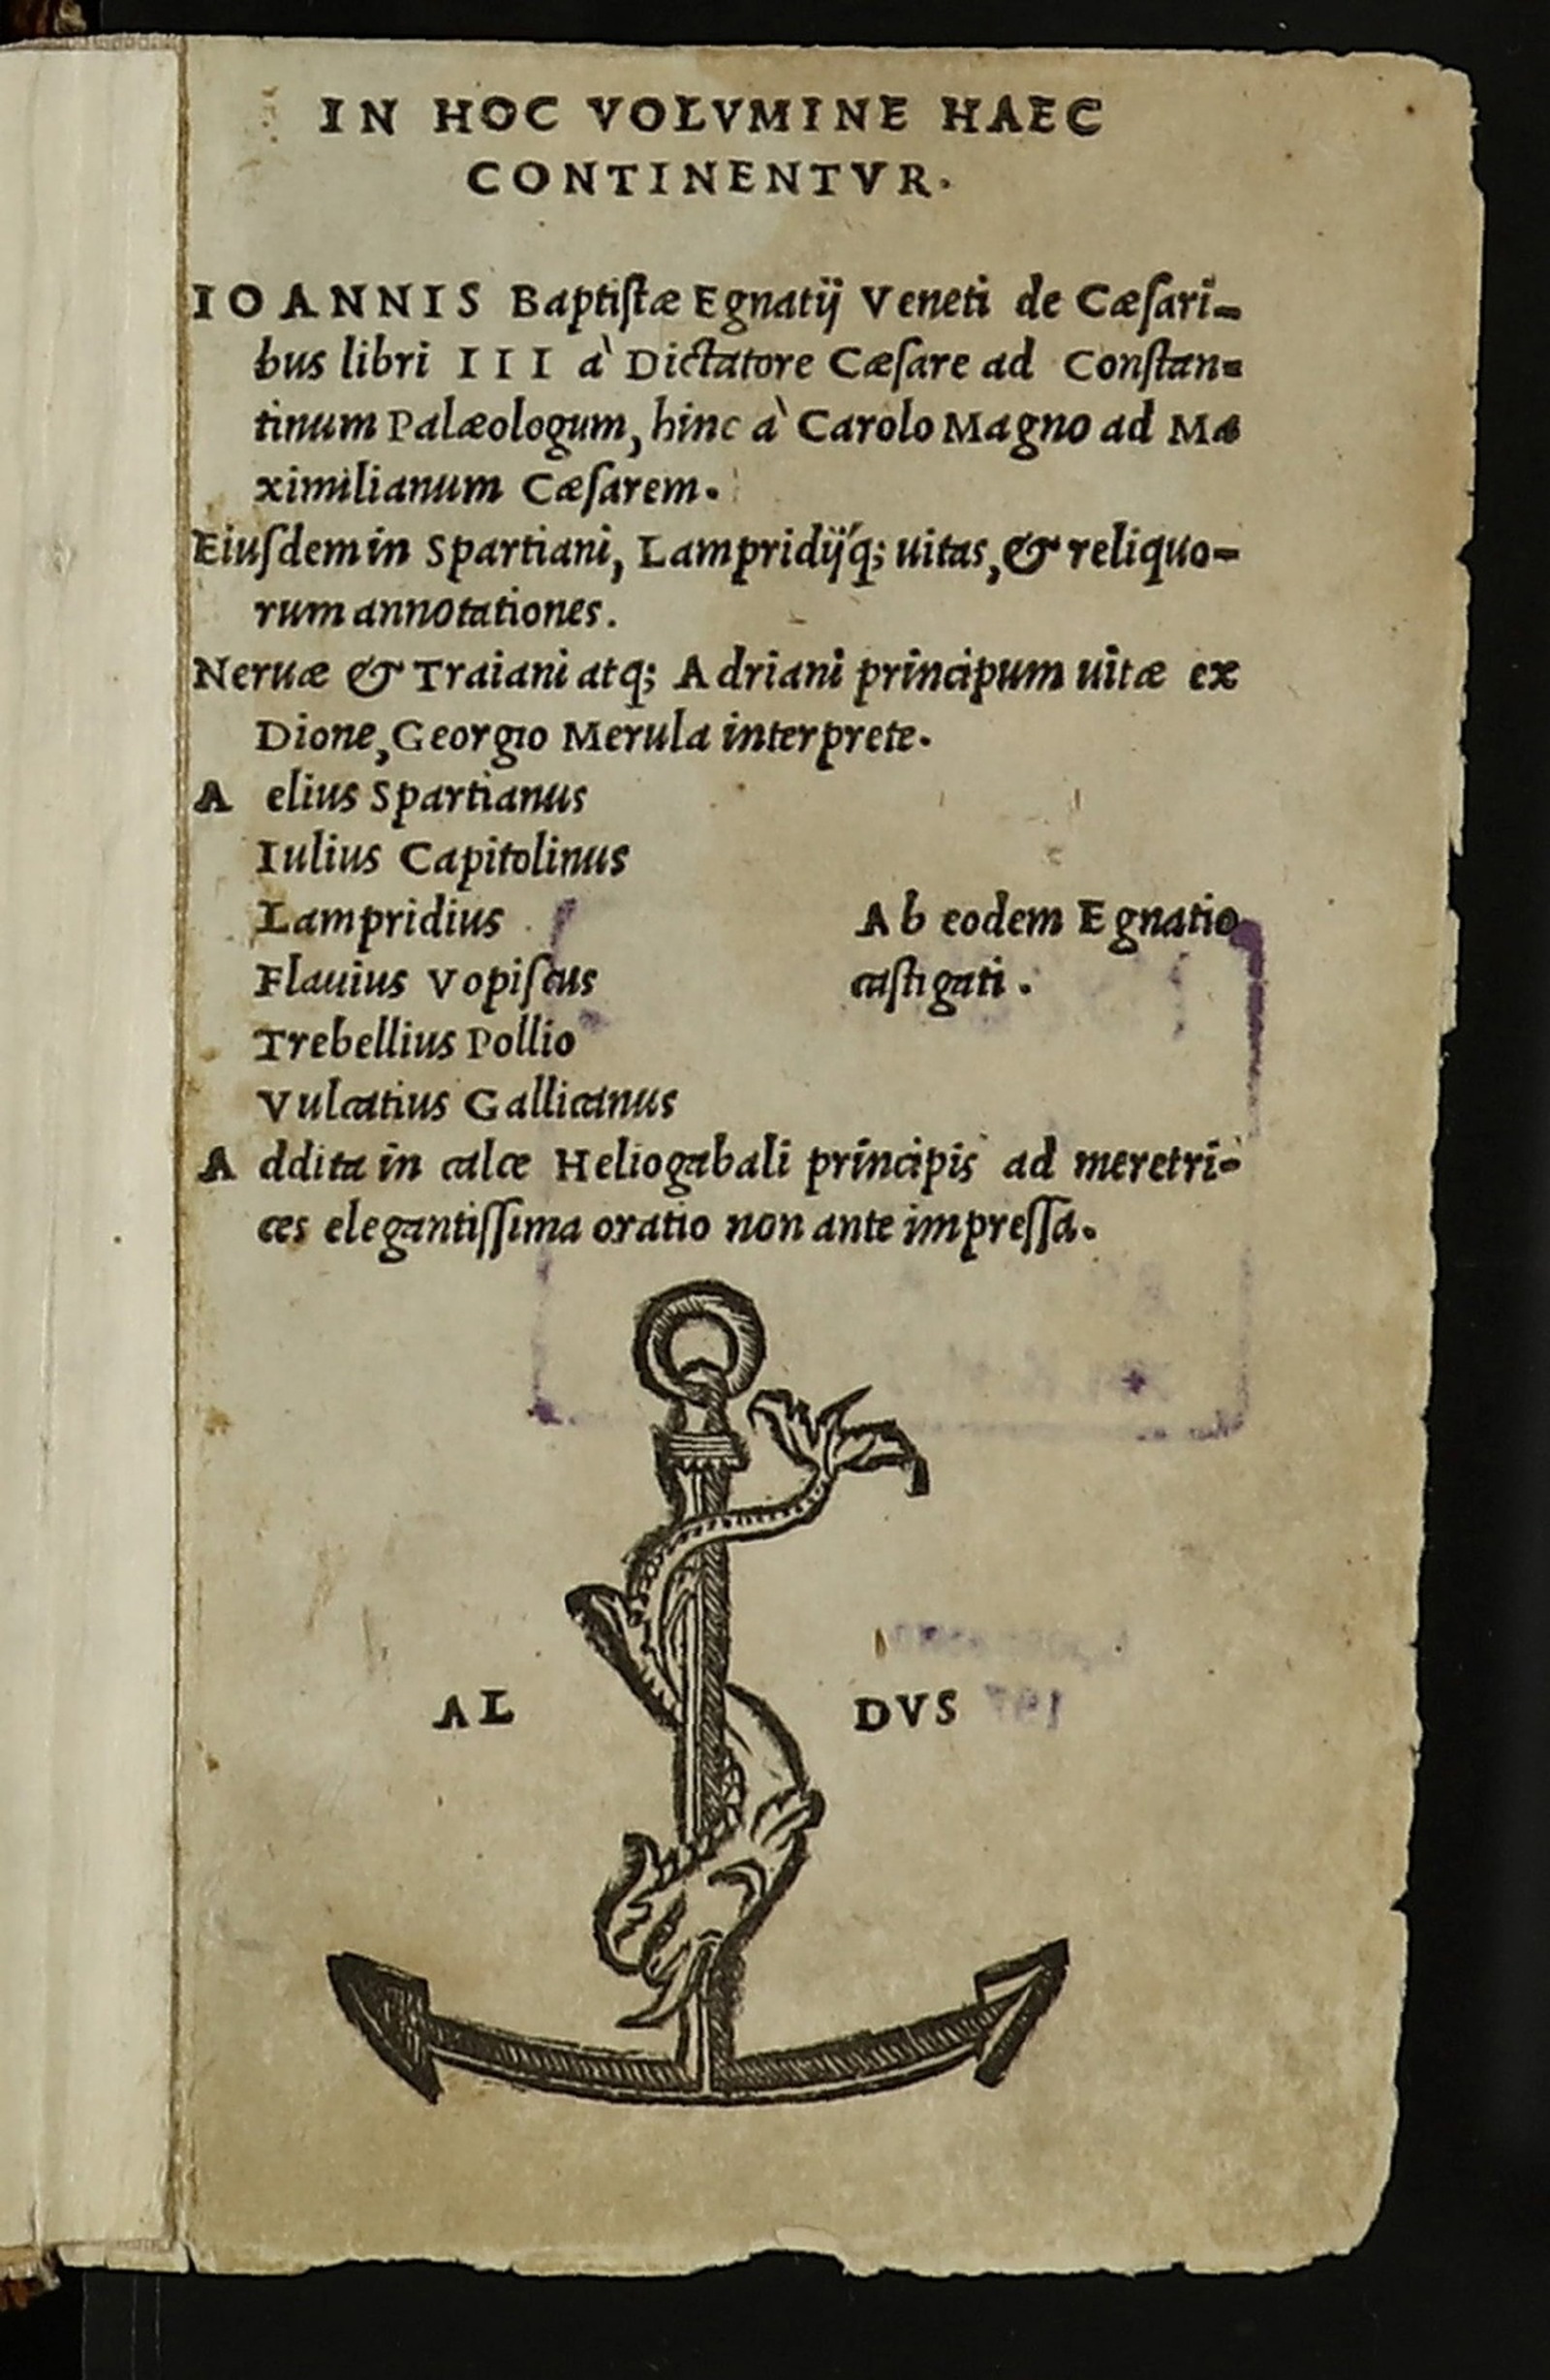 IN HOC VOLVMINE HAEC
CONTINENTVR.
IOANNIS Baptiſtæ Egnatij Veneti de Cæſari-
bus libri III à Dictatore Cæſare ad Conſtan-
tinum Palæologum, hinc à Carolo Magno ad Ma
ximilianum Cæſarem.
Eiuſdem in Spartiani, Lampridij́q; uitas, & reliquo-
rum annotationes.
Neruæ & Traiani atq; Adriani principum uitæ ex
Dione, Georgio Merula interprete.
Aelius Spartianus
Iulius Capitolinus
Lampridius
Flauius Vopiſcus
Trebellius Pollio
Vulcatius Gallicanus
Ab eodem Egnatio
caſtigati.
Addita in calce Heliogabali principis ad meretri-
ces elegantiſſima oratio non ante impreſſa.
AL DVS